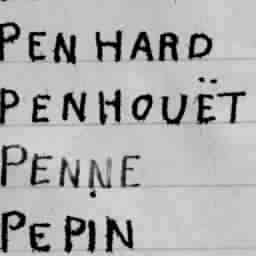 PENHARD
PENHOUËT
PENNE
PEPIN